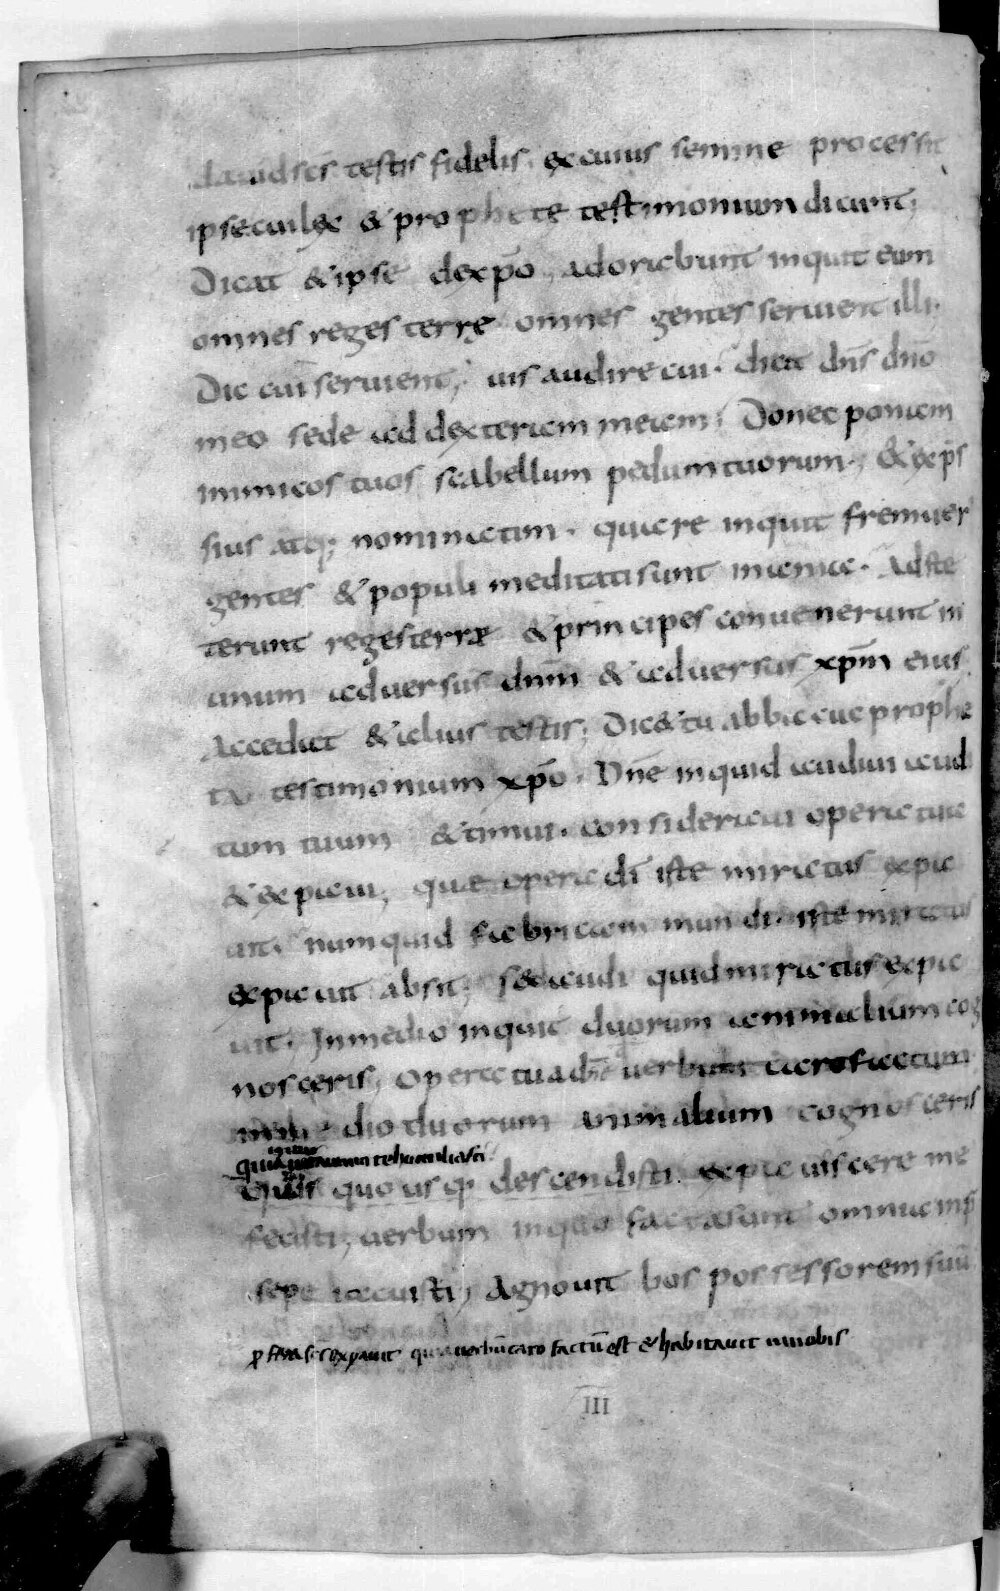 dauid scs testis fidelis. ex cuius semine processit
ipse cui lex & prophete testimonium dicunt;
Dicat & ipse dexpo, adorabunt inquit eum
omnes reges terrę omnes gentes seruient illi.
Dic cui seruient; uis audire cui. dicit dns dno
meo sede ad dexteram meam; Donec ponam
inimicos tuos scabellum pedum tuorum; & exps
sius atq; nominatim. quare inquit fremuer
gentes & populi meditati sunt inania. Adste
terunt reges terrę & principes conuenerunt in
unum aduersus dnm & aduersus xpm eius
Accedat & alius testis; Dic & tu abbacuc prophe
ta testimonium xpo. Dne inquid audiui audi
tum tuum & timui. consideraui opera tua
& expaui; quae opera di iste miratus expa
uit. numquid fabricam mundi iste miratus
expauit absit; sed audi quid miratus expa
uit. In medio inquit duorum animalium cog
nosceris; Opera tua dne uerbum caro factum
in medio duorum animalium cognosceris
quia in tantum te humiliasti
Quis quo usq; descendisti. expauiscere me
fecisti; uerbum in quo facta sunt omnia in p
sepe iacuisti; Agnouit bos possessorem suu
expauit quia uerbu caro factu est & habitauit in nobis
III